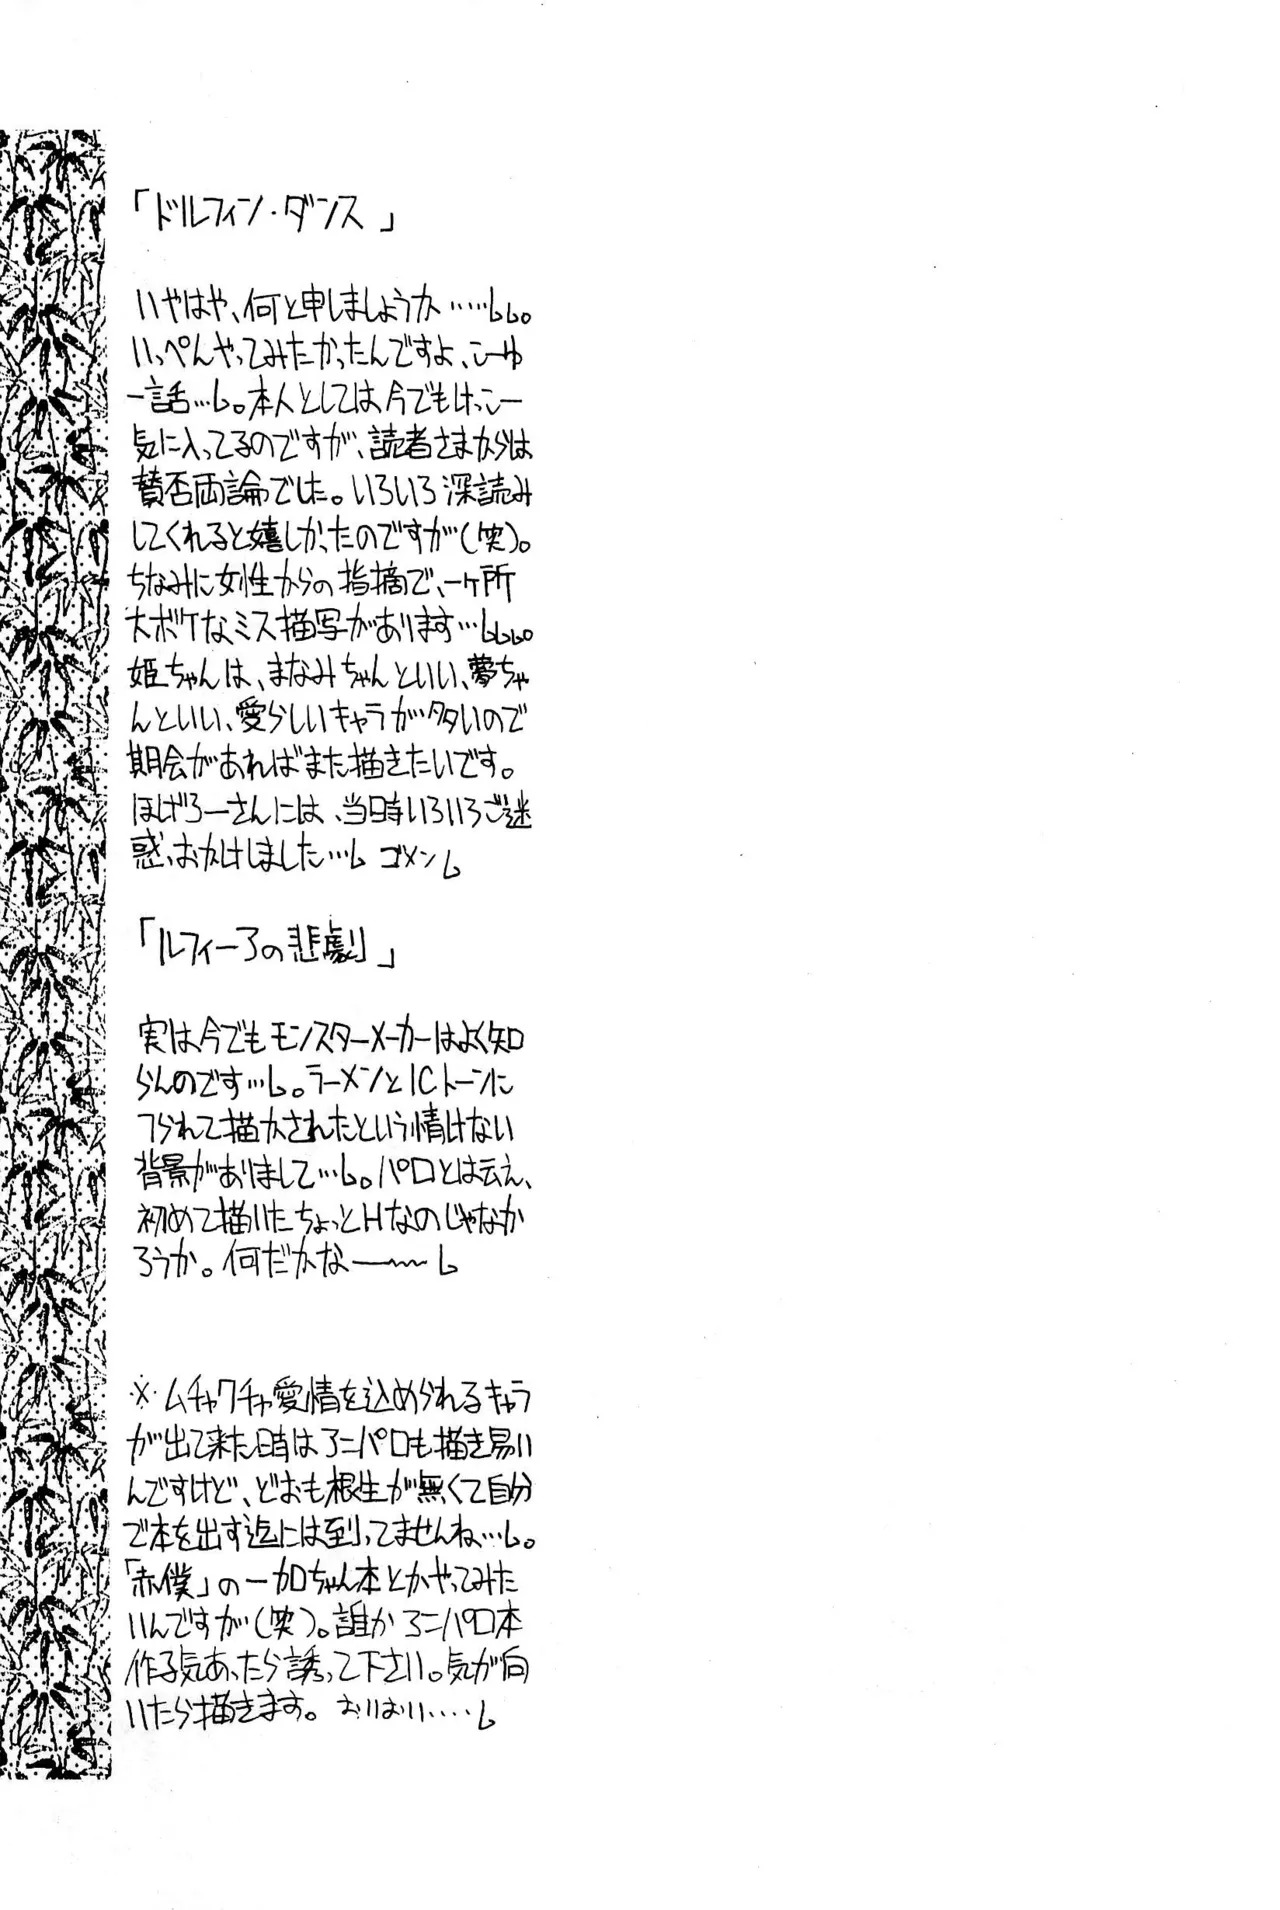 「ドルフィン・ダンス」
いやはや、何と申しましょうか……。
いっぺんやってみたかったんですよ、こーゆ
ー話…。本人としては今でもけっこー
気に入ってるのですが、読者さまからは
賛否両論でした。いろいろ深読み
してくれると嬉しかったのですが(笑)。
ちなみに女性からの指摘で、一ヶ所
大ボケなミス描写があります…。
姫ちゃんは、まなみちゃんといい、夢ちゃ
んといい、愛らしいキャラが多いので
期会があればまた描きたいです。
ほげろーさんには、当時いろいろご迷
惑、おかけしました… ゴメン
「ルフィーアの悲劇」
実は今でもモンスターメーカーはよく知
らんのです…。ラーメンとICトーンに
つられて描かされたという情けない
背景がありまして…。パロとは云え、
初めて描いたちょっとHなのじゃなか
ろうか。何だかな―〜
※ムチャクチャ愛情を込められるキャラ
が出て来た時はアニパロも描き易い
んですけど、どおも根生が無くて自分
で本を出す迄には到ってませんね…。
「赤僕」の一加ちゃん本とかやってみた
いんですが(笑)。誰かアニパロ本
作る気あったら誘って下さい。気が向
いたら描きます。おいおい……